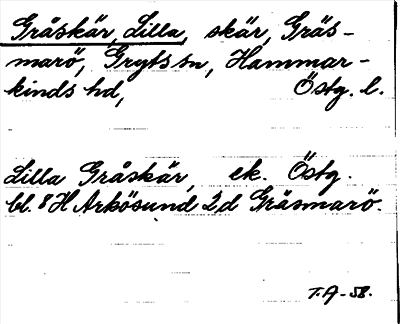 Gråskär, Lilla, skär, Gräs-
marö, Gryts sn, Hammar-
kinds hd, Östg. l.
Lilla Gråskär, ek. Östg.
bl. 8 H Arkösund 2d Gräsmarö.
T.A-58.